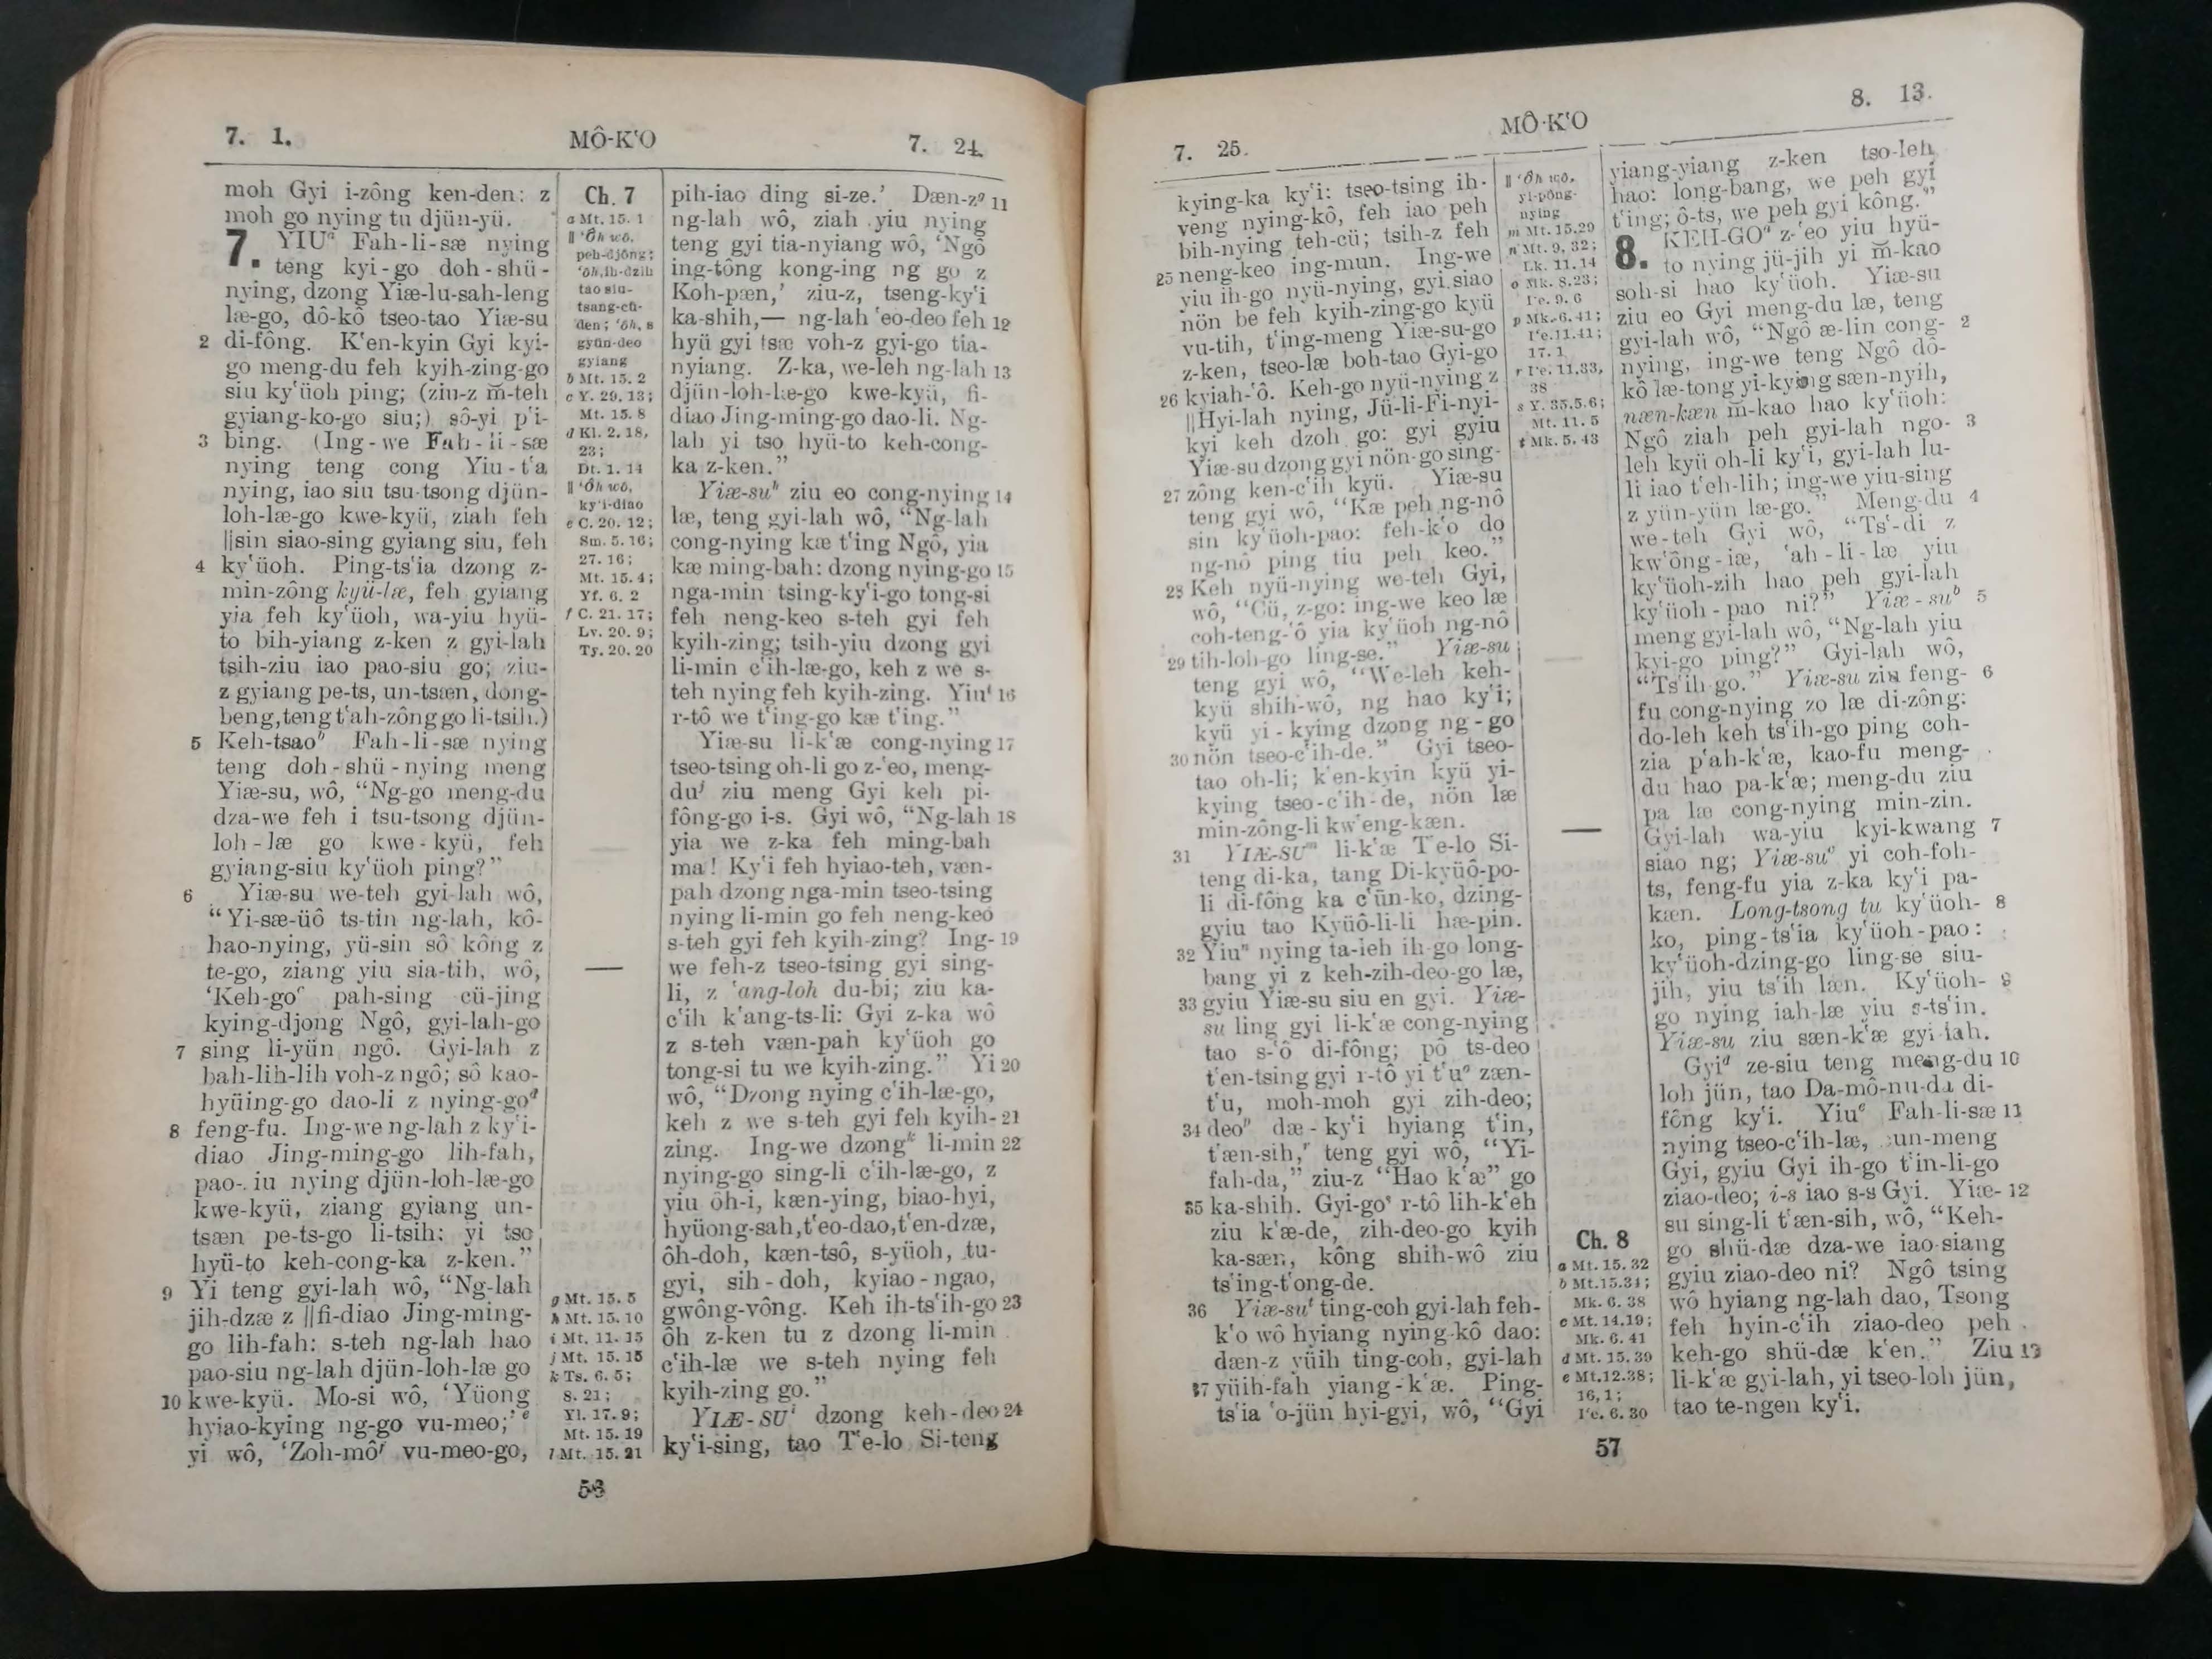 7. 1. MÔ-K‘O 7. 24.
moh Gyi i-zông ken-den: z
moh go nying tu djün-yü.
7. YIUᵃ Fah-li-sæ nying
teng kyi-go doh-shü-
nying, dzong Yiæ-lu-sah-leng
læ-go, dô-kô tseo-tao Yiæ-su
2 di-fông. K‘en-kyin Gyi kyi-
go meng-du feh kyih-zing-go
siu ky‘üoh ping; (ziu-z m̆-teh
gyiang-ko-go siu;) sô-yi p‘i-
3 bing. (Ing-we Fah-li-sæ
nying teng cong Yiu-t‘a
nying, iao siu tsu-tsong djün-
loh-læ-go kwe-kyü, ziah feh
||sin siao-sing gyiang siu, feh
4 ky‘üoh. Ping-ts‘ia dzong z-
min-zông kyü-læ, feh gyiang
yia feh ky‘üoh, wa-yiu hyü-
to bih-yiang z-ken z gyi-lah
tsih-ziu iao pao-siu go; ziu-
z gyiang pe-ts, un-tsæn, dong-
beng, teng t‘ah-zông go li-tsih.)
5 Keh-tsao Fah-li-sæ nying
teng doh-shü-nying meng
Yiæ-su, wô, “Ng-go meng-du
dza-we feh i tsu-tsong djün-
loh-læ go kwe-kyü, feh
gyiang-siu ky‘üoh ping?”
6 Yiæ-su we-teh gyi-lah wô,
“Yi-sæ-üô ts-tin ng-lah, kô-
hao-nying, yü-sin sô kông z
te-go, ziang yiu sia-tih, wô,
‘Keh-goᶜ pah-sing cü-jing
kying-djong Ngô, gyi-lah-go
7 sing li-yün ngô. Gyi-lah z
bah-lih-lih voh-z ngô; sô kao-
hyüing-go dao-li z nying-goᵈ
8 feng-fu. Ing-we ng-lah z ky‘i-
diao Jing-ming-go lih-fah,
pao-siu nying djün-loh-læ-go
kwe-kyü, ziang gyiang un-
tsæn pe-ts-go li-tsih: yi tso
hyü-to keh-cong-ka z-ken.”
9 Yi teng gyi-lah wô, “Ng-lah
jih-dzæ z ||fi-diao Jing-ming-
go lih-fah: s-teh ng-lah hao
pao-siu ng-lah djün-loh-læ go
10 kwe-kyü. Mo-si wô, ‘Yüong
hyiao-kying ng-go vu-meo;’ᵉ
yi wô, ‘Zoh-môᶠ vu-meo-go,
Ch. 7
a Mt. 15. 1
|| ‘Ôh wô,
peh-djông;
‘ôh, ih-dzih
tao siu-
tsang-cü-
den; ‘ôh, s
gyün-deo
gyiang
b Mt. 15. 2
c Y. 29. 13;
Mt. 15. 8
d Kl. 2. 18,
23;
Dt. 1. 14
|| ‘Ôh wô,
ky‘i-diao
e C. 20. 12;
Sm. 5. 16;
27. 16;
Mt. 15. 4;
Yf. 6. 2
f C. 21. 17;
Lv. 20. 9;
Ty. 20. 20
g Mt. 15. 5
h Mt. 15. 10
i Mt. 11. 15
j Mt. 15. 15
k Ts. 6. 5;
8. 21;
Yl. 17. 9;
Mt. 15. 19
l Mt. 15. 21
pih-iao ding si-ze.’ Dæn-zᵍ 11
ng-lah wô, ziah yiu nying
teng gyi tia-nyiang wô, ‘Ngô
ing-tông kong-ing ng go z
Koh-pæn,’ ziu-z, tseng-ky‘i
ka-shih,— ng-lah ‘eo-deo feh 12
hyü gyi tsæ voh-z gyi-go tia-
nyiang. Z-ka, we-leh ng-lah 13
djün-loh-læ-go kwe-kyü, fi-
diao Jing-ming-go dao-li. Ng-
lah yi tso hyü-to keh-cong-
ka z-ken.”
Yiæ-suʰ ziu eo cong-nying 14
læ, teng gyi-lah wô, “Ng-lah
cong-nying kæ t‘ing Ngô, yia
kæ ming-bah: dzong nying-go 15
nga-min tsing-ky‘i-go tong-si
feh neng-keo s-teh gyi feh
kyih-zing; tsih-yiu dzong gyi
li-min c‘ih-læ-go, keh z we s-
teh nying feh kyih-zing. Yiuⁱ 16
r-tô we t‘ing-go kæ t‘ing.”
Yiæ-su li-k‘æ cong-nying 17
tseo-tsing oh-li go z-‘eo, meng-
duʲ ziu meng Gyi keh pi-
fông-go i-s. Gyi wô, “Ng-lah 18
yia we z-ka feh ming-bah
ma! Ky‘i feh hyiao-teh, væn-
pah dzong nga-min tseo-tsing
nying li-min go feh neng-keo
s-teh gyi feh kyih-zing? Ing- 19
we feh-z tseo-tsing gyi sing-
li, z ‘ang-loh du-bi; ziu ka-
c‘ih k‘ang-ts-li: Gyi z-ka wô
z s-teh væn-pah ky‘üoh go
tong-si tu we kyih-zing.” Yi 20
wô, “Dzong nying c‘ih-læ-go,
keh z we s-teh gyi feh kyih- 21
zing. Ing-we dzongᵏ li-min 22
nying-go sing-li c‘ih-læ-go, z
yiu ôh-i, kæn-ying, biao-hyi,
hyüong-sah, t‘eo-dao, t‘en-dzæ,
ôh-doh, kæn-tsô, s-yüoh, tu-
gyi, sih-doh, kyiao-ngao,
gwông-vông. Keh ih-ts‘ih-go 23
ôh z-ken tu z dzong li-min
c‘ih-læ we s-teh nying feh
kyih-zing go.”
YIÆ-SUˡ dzong keh-deo 24
ky‘i-sing, tao T‘e-lo Si-teng
7. 25. MÔ-K‘O 8. 13.
kying-ka ky‘i: tseo-tsing ih-
veng nying-kô, feh iao peh
bih-nying teh-cü; tsih-z feh
neng-keo ing-mun. Ing-we
25 yiu ih-go nyü-nying, gyi siao
nön be feh kyih-zing-go kyü
vu-tih, t‘ing-meng Yiæ-su-go
z-ken, tseo-læ boh-tao Gyi-go
26 kyiah-‘ô. Keh-go nyü-nying z
||Hyi-lah nying, Jü-li-Fi-nyi-
kyi keh dzoh go: gyi gyiu
Yiæ-su dzong gyi nön-go sing-
zông ken-c‘ih kyü. Yiæ-su
27 teng gyi wô, “Kæ peh ng-nô
sin ky‘üoh-pao: feh-k‘o do
ng-nô ping tiu peh keo.”
28 Keh nyü-nying we-teh Gyi,
wô, “Cü, z-go: ing-we keo læ
coh-teng-‘ô yia ky‘üoh ng-nô
29 tih-loh-go ling-se.” Yiæ-su
teng gyi wô, “We-leh keh-
kyü shih-wô, ng hao ky‘i;
kyü yi-kying dzong ng-go
30 nön tseo-c‘ih-de.” Gyi tseo-
tao oh-li; k‘en-kyin kyü yi-
kying tseo-c‘ih-de, nön læ
min-zông-li kw‘eng-kæn.
31 YIÆ-SUᵐ li-k‘æ T‘e-lo Si-
teng di-ka, tang Di-kyüô-po-
li di-fông ka c‘ün-ko, dzing-
gyiu tao Kyüô-li-li hæ-pin.
32 Yiuⁿ nying ta-ieh ih-go long-
bang yi z keh-zih-deo-go læ,
33 gyiu Yiæ-su siu en gyi. Yiæ-
su ling gyi li-k‘æ cong-nying
tao s-‘ô di-fông; pô ts-deo
t‘en-tsing gyi r-tô yi t‘uᵒ zæn-
t‘u, moh-moh gyi zih-deo;
34 deoᵖ dæ-ky‘i hyiang t‘in,
t‘æn-sih,ʳ teng gyi wô, “Yi-
fah-da,” ziu-z “Hao k‘æ” go
35 ka-shih. Gyi-goˢ r-tô lih-k‘eh
ziu k‘æ-de, zih-deo-go kyih
ka-sæn, kông shih-wô ziu
ts‘ing-t‘ong-de.
36 Yiæ-suᵗ ting-coh gyi-lah feh-
k‘o wô hyiang nying-kô dao:
dæn-z yüih ting-coh, gyi-lah
37 yüih-fah yiang-k‘æ. Ping-
ts‘ia ‘o-jün hyi-gyi, wô, “Gyi
|| ‘Ôh wô,
yi-pông-
nying
m Mt. 15. 29
n Mt. 9. 32;
Lk. 11. 14
o Mk. 8. 23;
I‘e. 9. 6
p Mk. 6. 41;
I‘e. 11. 41;
17. 1
r I‘e. 11. 33,
38
s Y. 35. 5. 6;
Mt. 11. 5
t Mk. 5. 43
Ch. 8
a Mt. 15. 32
b Mt. 15. 34;
Mk. 6. 38
c Mt. 14. 19;
Mk. 6. 41
d Mt. 15. 39
e Mt. 12. 38;
16. 1;
I‘e. 6. 30
yiang-yiang z-ken tso-leh
hao: long-bang, we peh gyi
t‘ing; ô-ts, we peh gyi kông.”
8. KEH-GOᵃ z-‘eo yiu hyü-
to nying jü-jih yi m̆-kao
soh-si hao ky‘üoh. Yiæ-su
ziu eo Gyi meng-du læ, teng
gyi-lah wô, “Ngô æ-lin cong- 2
nying, ing-we teng Ngô dô-
kô læ-tong yi-kying sæn-nyih,
næn-kæn m̆-kao hao ky‘üoh:
Ngô ziah peh gyi-lah ngo- 3
leh kyü oh-li ky‘i, gyi-lah lu-
li iao t‘eh-lih; ing-we yiu-sing
z yün-yün læ-go.” Meng-du 4
we-teh Gyi wô, “Ts‘-di z
kw‘ông-iæ, ‘ah-li-læ yiu
ky‘üoh-zih hao peh gyi-lah
ky‘üoh-pao ni?” Yiæ-suᵇ 5
meng gyi-lah wô, “Ng-lah yiu
kyi-go ping?” Gyi-lah wô,
“Ts‘ih-go.” Yiæ-su zia feng- 6
fu cong-nying zo læ di-zông:
do-leh keh ts‘ih-go ping coh-
zia p‘ah-k‘æ, kao-fu meng-
du hao pa-k‘æ; meng-du ziu
pa læ cong-nying min-zin.
Gyi-lah wa-yiu kyi-kwang 7
siao ng; Yiæ-suᶜ yi coh-foh-
ts, feng-fu yia z-ka ky‘i pa-
kæn. Long-tsong tu ky‘üoh- 8
ko, ping-ts‘ia ky‘üoh-pao:
ky‘üoh-dzing-go ling-se siu-
jih, yiu ts‘ih læn. Ky‘üoh- 9
go nying iah-læ yiu s-ts‘in.
Yiæ-su ziu sæn-k‘æ gyi-lah.
Gyiᵈ ze-siu teng meng-du 10
loh jün, tao Da-mô-nu-da di-
fông ky‘i. Yiuᵉ Fah-li-sæ 11
nying tseo-c‘ih-læ, un-meng
Gyi, gyiu Gyi ih-go t‘in-li-go
ziao-deo; i-s iao s-s Gyi. Yiæ- 12
su sing-li t‘æn-sih, wô, “Keh-
go shü-dæ dza-we iao siang
gyiu ziao-deo ni? Ngô tsing
wô hyiang ng-lah dao, Tsong
feh hyin-c‘ih ziao-deo peh
keh-go shü-dæ k‘en.” Ziu 13
li-k‘æ gyi-lah, yi tseo-loh jün,
tao te-ngen ky‘i.
57